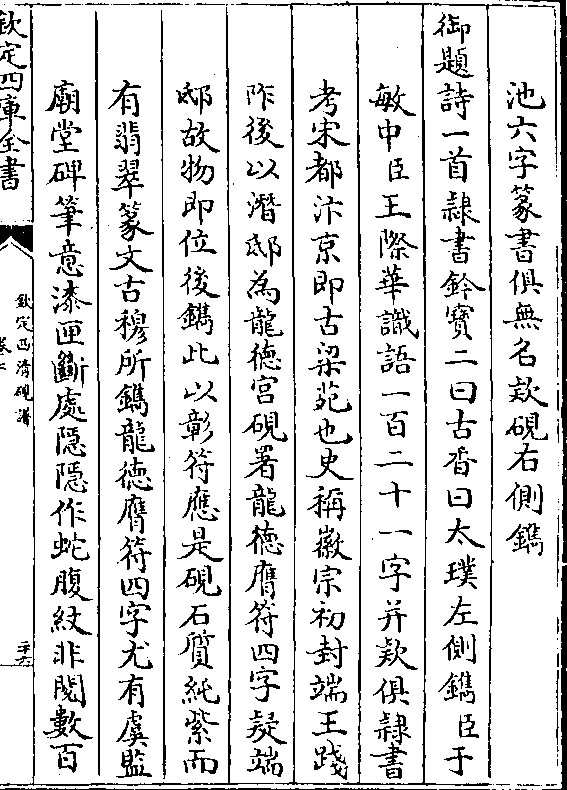 池六字篆書俱無名欵硯右側鐫
御題詩一首隸書鈐寳二曰古香曰太璞左側鐫臣于
敏中臣王際華識語一百二十一字并欵俱隸書
考宋都汴京即古梁苑也史稱徽宗初封端王踐
阼後以潛邸為龍德宫硯署龍德膺符四字疑端
邸故物即位後鐫此以彰符應是硯石質純紫而
有翡翠篆文古穆所鐫龍德膺符四字尤有虞監
廟堂碑筆意漆匣斷處隱隱作蛇腹紋非閱數百
欽定四庫全書
欽定西清硯譜
卷二
二十六